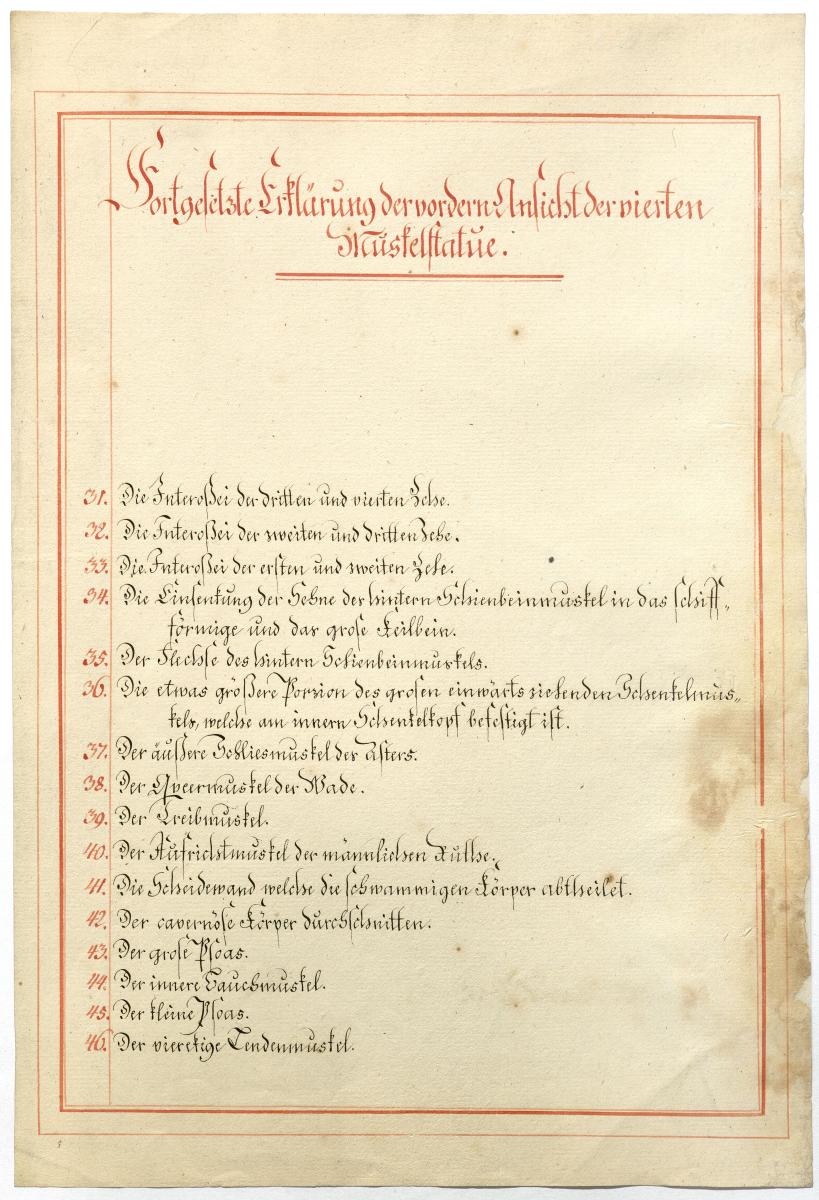 Fortgesetzte Erklärung der vordern Ansicht der vierten
Muskelstatue.
31. Die Interoßei der dritten und vierten Zehe.
32. Die Interoßei der zweiten und dritten Zehe.
33. Die Interoßei der ersten und zweiten Zehe.
34. Die Einsenkung der Sehne der hintern Schienbeinmuskel in das schiff-
förmige und das grose Keilbein.
35. Der Flechse des hintern Schienbeinmuskels.
36. Die etwas größere Porzion des grosen einwärts ziehenden Schenkelmus-
kels, welche am innern Schenkelkopf befestigt ist.
37. Der äußere Schliesmuskel der Afters.
38. Der Qveermuskel der Wade.
39. Der Treibmuskel.
40. Der Aufrichtmuskel der männlichen Ruthe.
41. Die Scheidewand welche die schwammigen Körper abtheilet.
42. Der cavernöse Körper durchschnitten.
43. Der grose Psoas.
44. Der innere Bauchmuskel.
45. Der kleine Psoas.
46. Der vierekige Lendenmuskel.